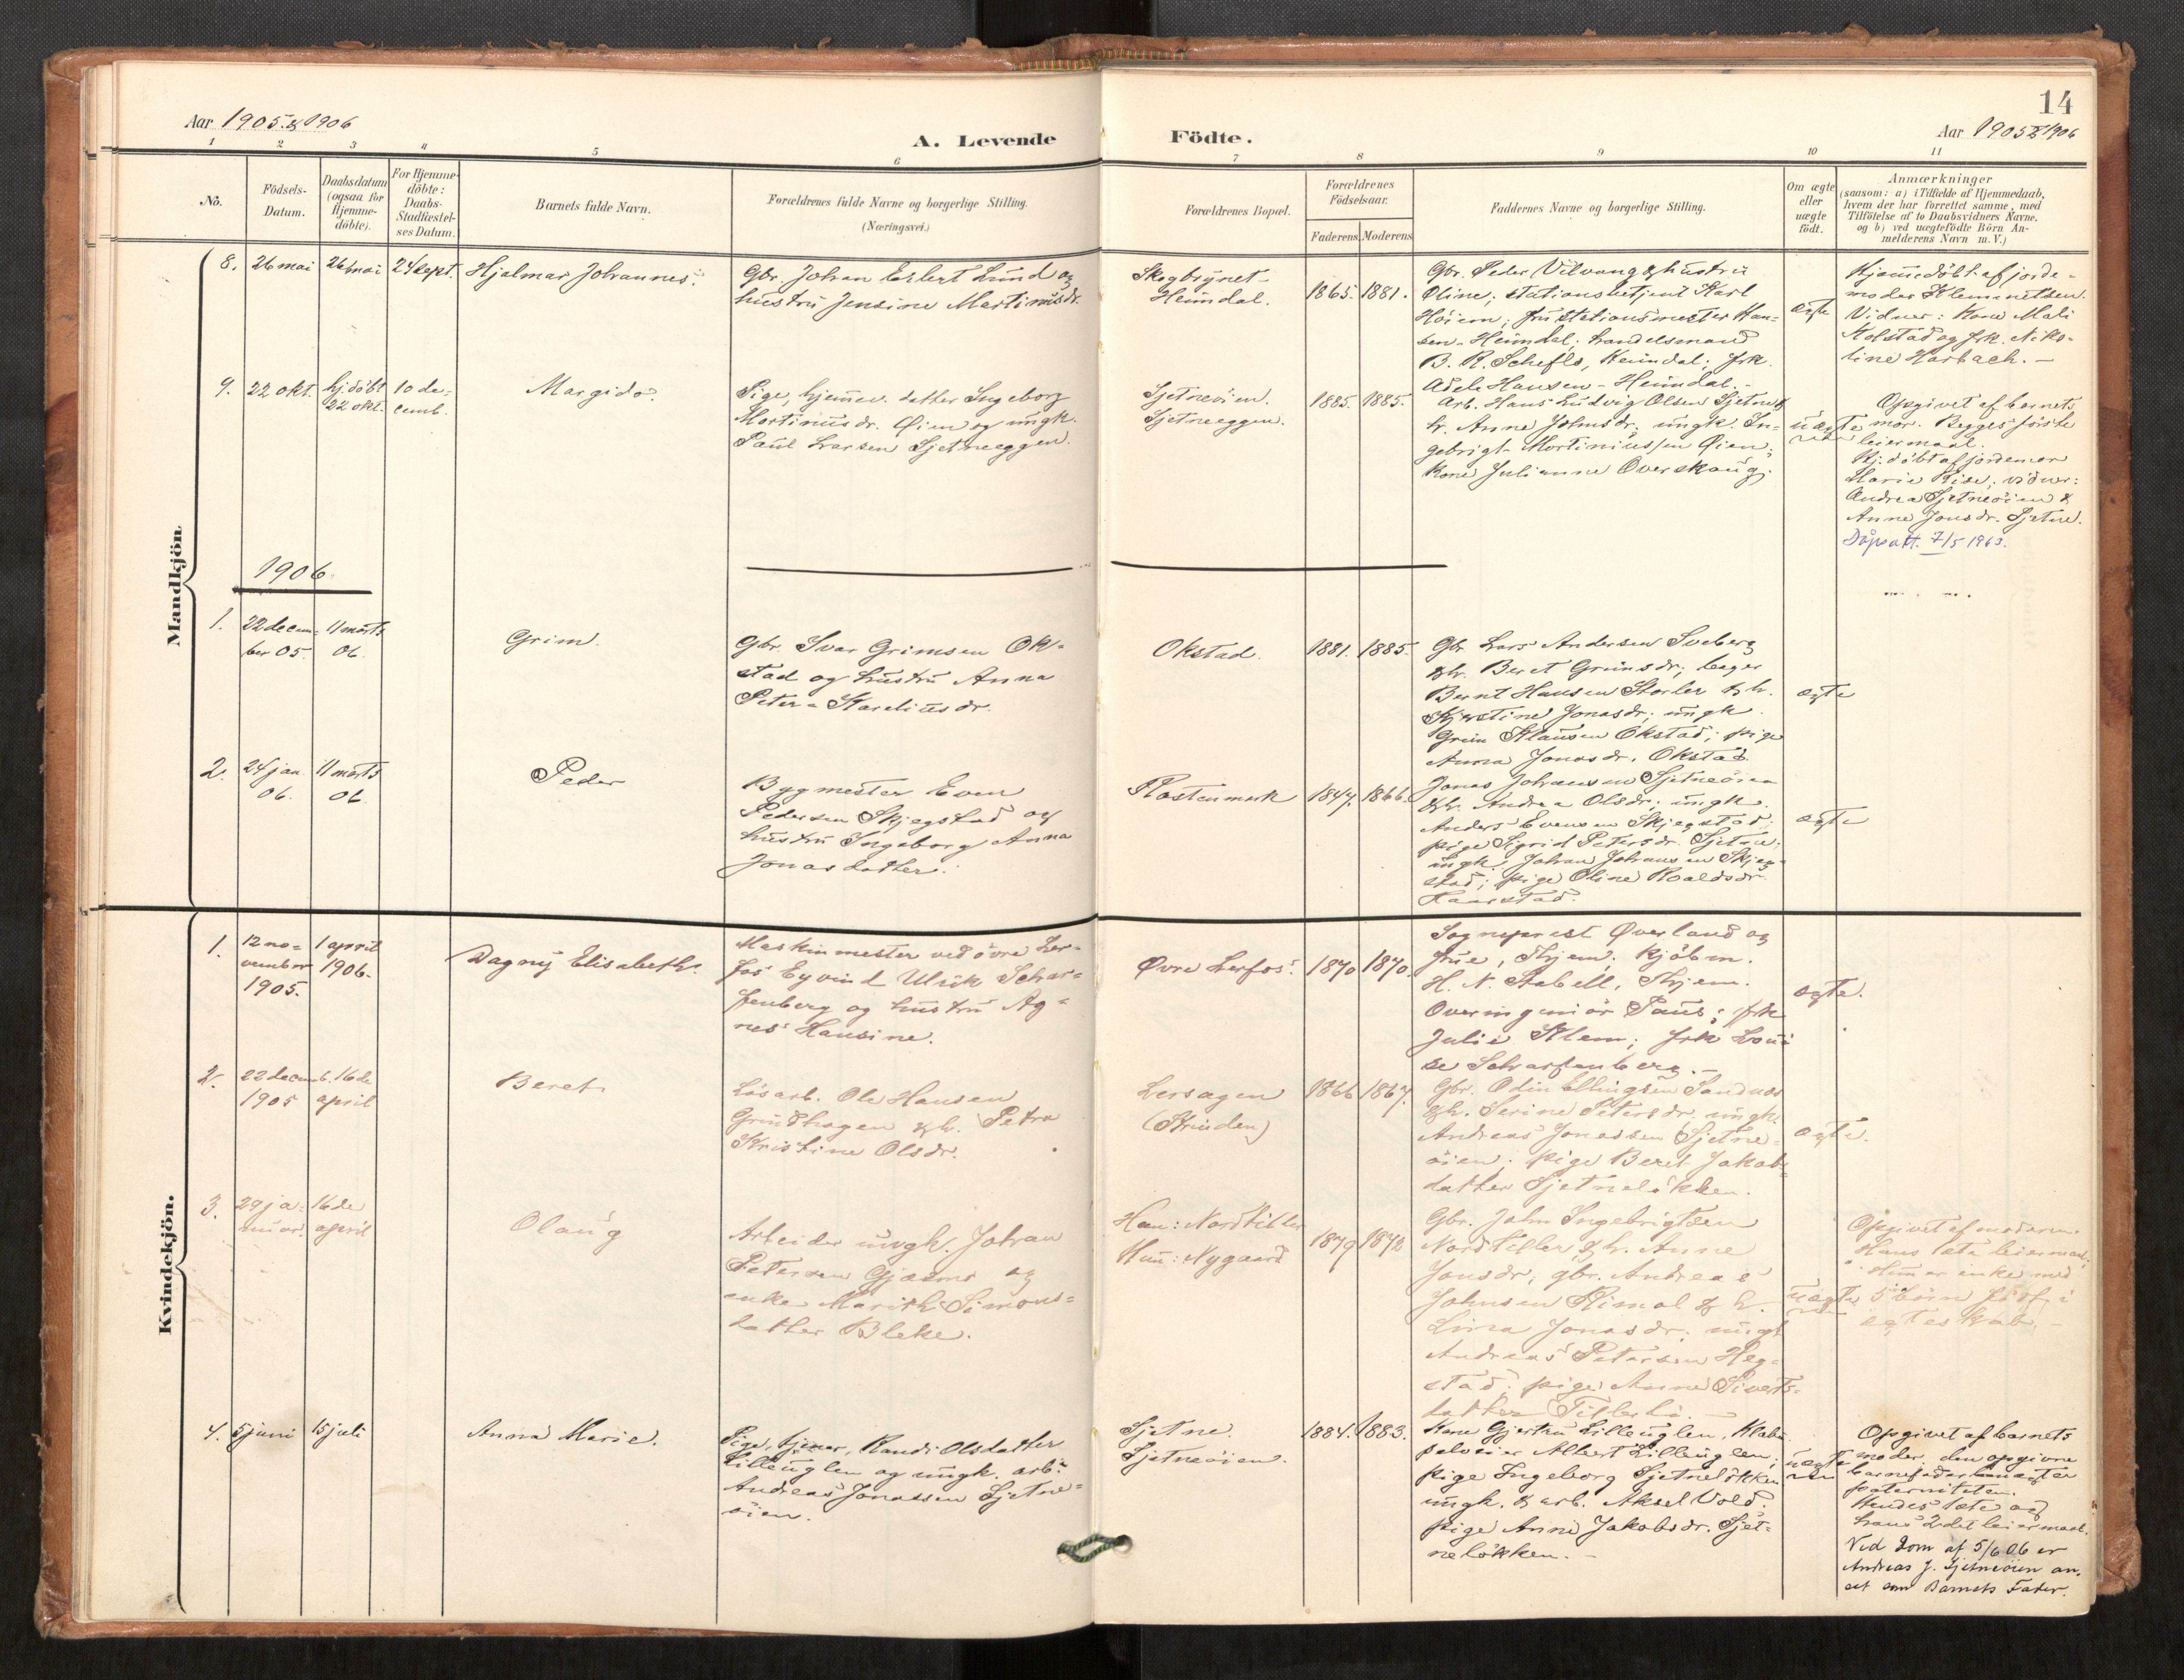 14
Aar 1905 & 1906
A. Levende
Födte.
Aar 1905 & 1906
1 2 3 4 5 6 7 8 9 10 11
No.
Födsels-
Datum.
Daabsdatum
(ogsaa for
Hjemme-
döbte).
For Hjemme-
döbte:
Daabs-
Stadfestel-
ses Datum.
Barnets fulde Navn.
Forældrenes fulde Navne og borgerlige Stilling.
(Næringsvei.)
Forældrenes Bopæl.
Forældrenes
Födselsaar.
Faderens. Moderens.
Faddernes Navne og borgerlige Stilling.
Om ægte
eller
uægte
födt.
Anmærkninger
(saasom: a) i Tilfælde af Hjemmedaab,
hvem der har forrettet samme, med
Tilföielse af to Daabsvidners Navne.
og b) ved uægtefödte Börn An-
melderens Navn m. V.)
Mandkjön.
8. 26 mai 26 mai 24 sept. Hjalmar Johannes.
Gbr. Johan Eilert Lund og
hustru Jensine Martinusdr.
Skogbrynet-
Heimdal.
1865. 1881.
Gbr. Peder Vilvang & hustru
Oline; stationsbetjent Karl
Höiem; fru stationsmester Han-
sen-Heimdal; handelsmand
B. R. Schefte, Heimdal; frk.
Adele Hansen-Heimdal.-
ægte
Hjemmedöbt af jorde-
moder Klemmetsen.
Vidner: Kone Mali
Kolstad og frk. Niko-
line Harbach.-
9. 22 okt. hjdöbt
22 okt.
10 de-
cemb.
Margido.
Pige, hjemmev. datter Ingeborg
Mortinusdr. Øien og ungk.
Paul Larsen Sjetneeggen.
Sjetneöien.
Sjetneeggen.
1885. 1885.
Arb. Hans Ludvig Olsen Sjetne &
h. Anne Johnsdr. ungk. In-
gebrigt Mortinussen Øien;
Kone Julianne Overskaug.
uægte
Opgivet af barnets
mor. Begges förste
leiermaal.
Hj. döbt af jordemor
Marie Rise; vidner:
Andrea Sjetneöien &
Anne Jonsdr. Sjetne.
Dåpsatt. 7/5 1963.
1906.
1. 22 decem-
ber 05.
11 marts
06.
Grim.
Gbr. Ivar Grimsen Ok-
stad og hustru Anna
Peter-Kareliusdr.
Okstad.
1881. 1885.
Gbr. Lars Andersen Sveberg
& h. Beret Grimsdr; bager
Bernt Hansen Storler & h.
Kjerstine Jonasdr; ungk.
Grim Klausen Okstad; pige
Anna Jonasdr. Okstad.
ægte
2. 24 jan.
06.
11 marts
06.
Peder
Bygmester Even
Pedersen Skjegstad og
hustru Ingeborg Anna
Jonasdatter.
Rostenmark
1847. 1866.
Jonas Johnsen Sjetneöien
& h. Andrea Olsdr; ungk.
Anders Evensen Skjegstad;
pige Sigrid Petersdr. Sjetne;
ungk. Johan Johansen Skjeg-
stad; pige Oline Roaldsdr.
Haarstad.
ægte
Kvindekjön.
1. 12 no-
vember
1905.
1 april
1906.
Dagny Elisabeth.
Maskinmester ved övre Ler-
fos Eyvind Ulrik Schar-
fenberg og hustru Ag-
nes Hansine.
Øvre Lerfos.
1870 1870.
Sogneprest Øverland og
frue, Thjem; kjöbm.
H. N. Stabell, Thjem.
Overingeniör Paus; frk
Julie Klem; frk Loui-
se Scharfenberg.-
ægte.
2. 22 decemb.
1905
16de
april
Beret.
Lösarb. Ole Hansen
Grindhagen & h. Petra
Kristine Olsdr.
Lersagen
(Strinden)
1866 1867.
Gbr. Odin Ellingsen Sandnes
& h. Serine Petersdr, ungk.
Andreas Jonassen Sjetne-
öien; pige Beret Jakobs-
datter Sjetnelökken.
ægte.
3. 29 ja-
nuar.
16de
april
Olaug
Arbeider ungk. Johan
Petersen Gjæsmo og
enke Marith Simons-
datter Bleke.
Han: Nordtiller
Hun: Nygaard
1879 1872
Gbr. John Ingebrigtsen
Nordtiller & h. Anne
Jonsdr; gbr. Andreas
Johnsen Kimol & h.
Lina Jonasdr; ungk
Andreas Petersen Heg-
stad; pige Anne Siverts-
datter Tillerli.-
uægte
Opgivet af moderen.
Hans 1ste leiermaal;
Hun er enke med
5 börn födt i
ægteskab.-
4. 5 juni 15 juli Anna Marie.
Pige, tjener, Randi Olsdatter
Lilleuglen og ungk. arb.
Andreas Jonassen Sjetne-
öien.
Sjetne.
Sjetneöien.
1884. 1883.
Kone Gjertru Lilleuglen, Klæbu
selveier Albert Lilleuglen;
pige Ingeborg Sjetnelökken
ungk. & arb. Aksel Vold.
pige Anne Jakobsdr. Sjet-
nelökken.-
uægte
Opgivet af barnets
moder; den opgivne
barnefader benægter
paterniteten.
Hendes 1ste og
hans 2det leiermaal.
Ved Dom af 5/6 06 er
Andreas J. Sjetneöien an-
set som Barnets Fader.